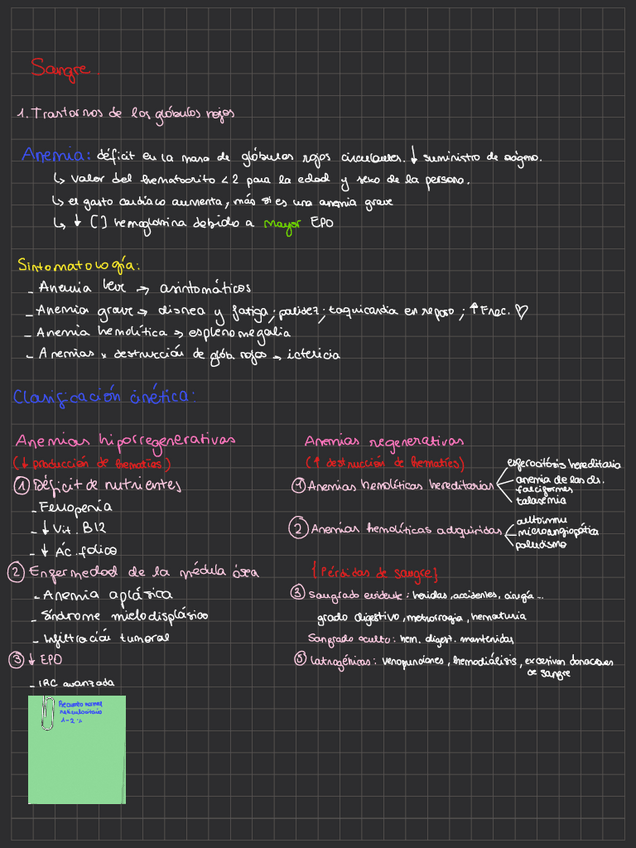 Sangre
1. Trastornos de los glóbulos rojos
Anemia: déficit en la masa de glóbulos rojos circulantes. ↓ suministro de oxígeno.
↳ valor del hematocrito <2 para la edad y sexo de la persona.
↳ el gasto cardíaco aumenta, más si es una anemia grave
↳ ↓ [ ] hemoglobina debido a mayor EPO
Sintomatología:
- Anemia leve → asintomáticos
- Anemia grave → disnea y fatiga; palidez; taquicardia en reposo; ↑ Frec. ♡
- Anemia hemolítica → esplenomegalia
- Anemias x destrucción de glób. rojos → ictericia
Clasificación cinética:
Anemias hiporregenerativas
(↓ producción de hematíes)
① Déficit de nutrientes
- Ferropenia
- ↓ Vit. B12
- ↓ Ác. fólico
② Enfermedad de la médula ósea
- Anemia aplásica
- Síndrome mielodisplásico
- Infiltración tumoral
③ ↓ EPO
- IRC avanzada
Recuento normal
reticulocitario
1-2 %
Anemias regenerativas
(↑ destrucción de hematíes)
① Anemias hemolíticas hereditarias
esferocitosis hereditaria
anemia de las cl.
falciformes
talasemia
② Anemias hemolíticas adquiridas
autoinmu
microangiopática
paludismo
{Pérdidas de sangre}
③ Sangrado evidente: heridas, accidentes, cirugía...
grado digestivo, metrorragia, hematuria
Sangrado oculto: hem. digest. mantenidas
⑤ Iatrogénicas: venopunciones, hemodiálisis, excesivas donaciones
de sangre